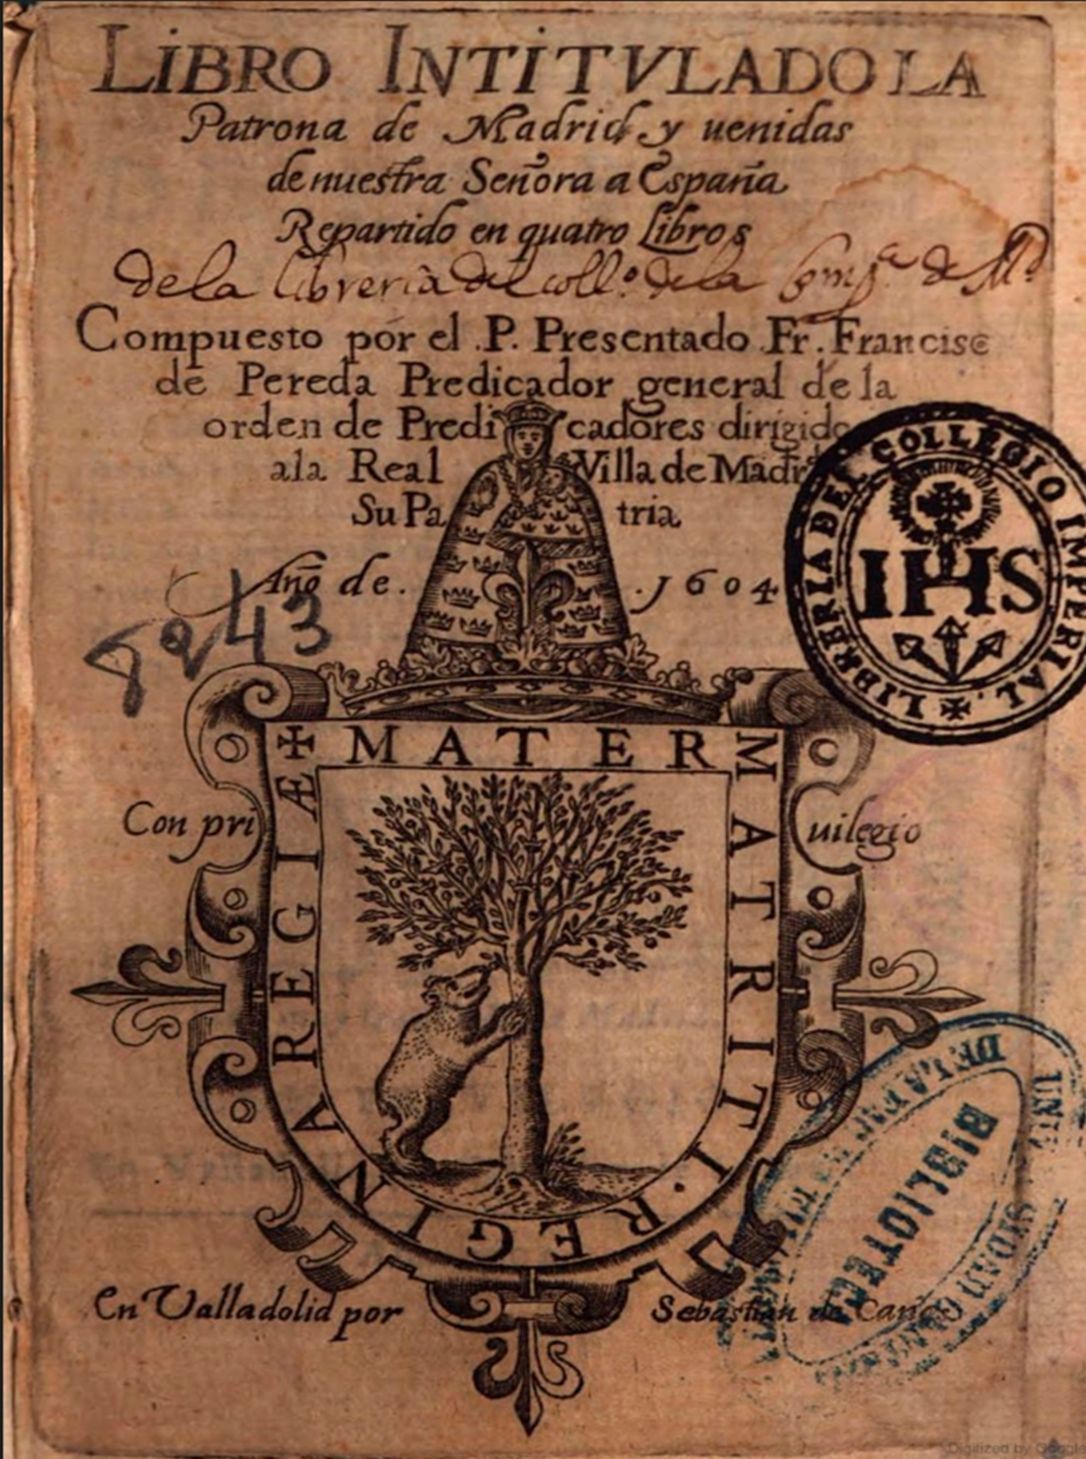 LIBRO INTITVLADO LA
Patrona de Madrid y uenidas
de nuestra Señora a España
Repartido en quatro Libros
de la libreria del coll.º de la Comp.ª de M.d
Compuesto por el .P. Presentado .Fr. Francisc
de Pereda Predicador general de la
orden de Predicadores dirigido
ala Real Villa de Madri
Su Patria
Año de. .1604
8243
LIBRERIA DEL COLLEGIO IMPERIAL.
IHS
✠ MATER MATRITI. REGINA REGIÆ
Con priuilegio
BIBLIOTECA
En Valladolid por Sebastian de Cañas
Digitized by Google